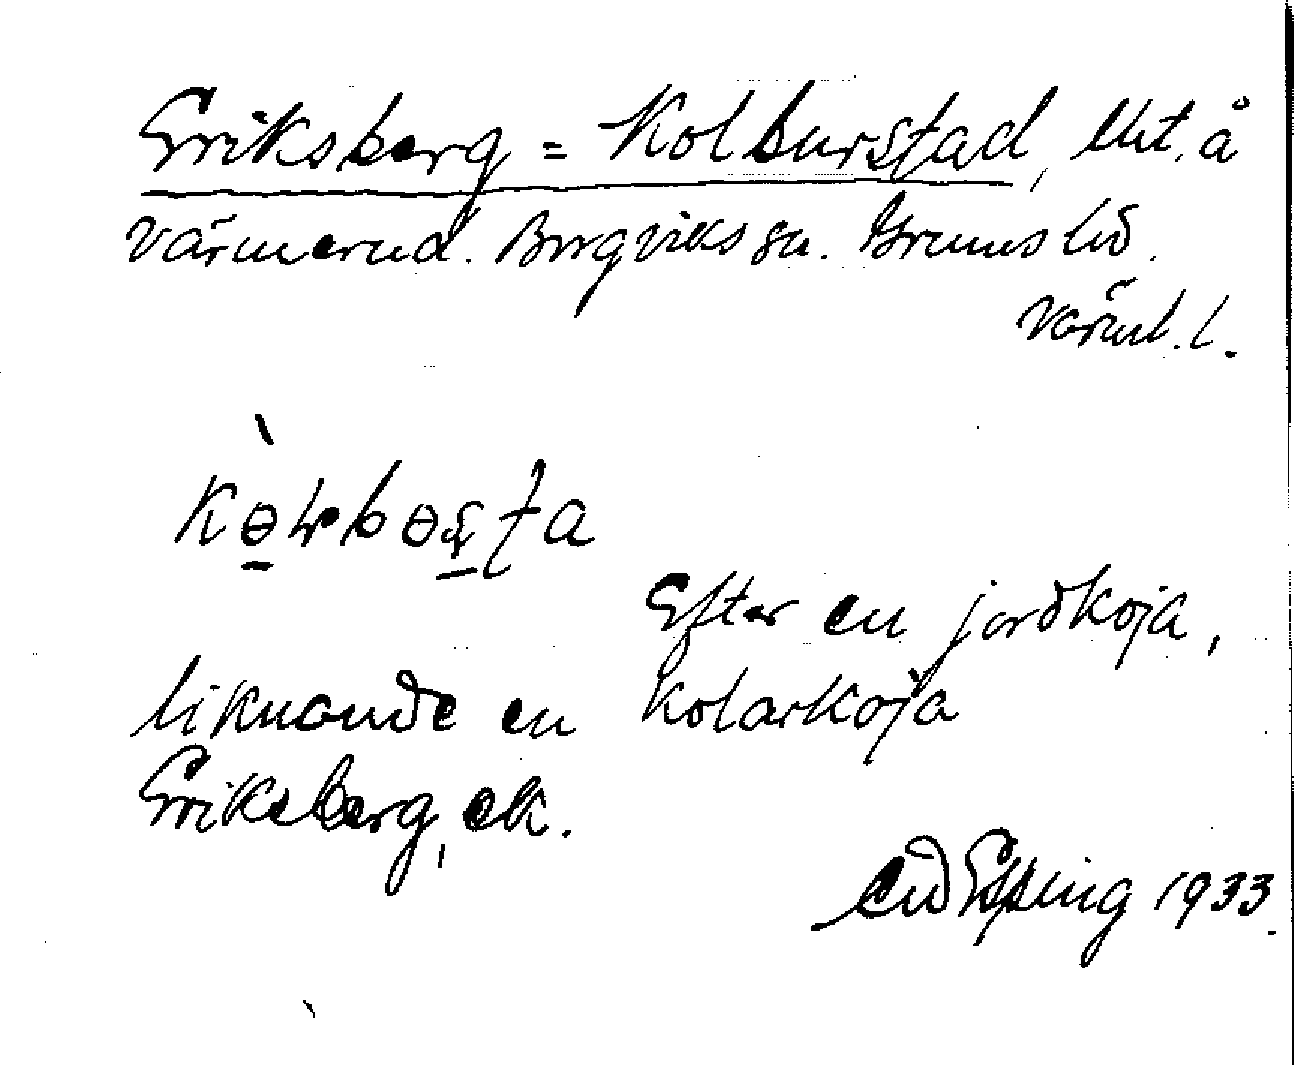 Eriksberg = Kolburstad, lht. å
Värmerud. Borgviks sn. Grums hd.
Värml. l.
kɵlbɵsta
Efter en jordkoja,
liknande en kolarkoja
Eriksberg, ek.
1933.